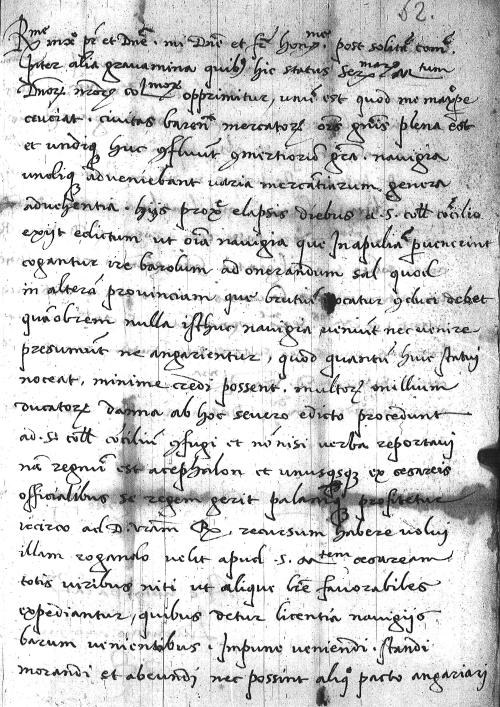 62.
R.me in xpo pr et Dne. mi Dne et fr hon.me post solitā com.
Inter alia gravamina quibus hic status Ser.marum M.tum
Dnorum nrorum col.morum opprimitur, unū est quod me maxe
cruciat. civitas baren mercatorum oīs gnīs plena est
et undique huc confluunt comertiorum gra. navigia
undiq adveniebant varia mercātiarum genera
advehentia. hijs prox elapsis diebus a S. coll cōcilio
exijt edictum ut oīa navigia que In apulia pvenerint
cogantur ire barolum ad onerandum sal quod
in alterā provinciam que brutiū vocatur conduci debet
quāobrem nulla isthuc navigia veniūt nec venire
presumūt ne angarientur, quod quantū huic statui
noceat, minime credi possent. multorum millium
ducatorum danna ab hoc severo edicto procedunt
ad. S. coll cōciliū confugi et nō nisi verba reportavi
nā regnū est acephalon et unusqsque ex cesareis
officialibus se regem gerit palamque profitetur
iccirco ad D. vram R. recursum habere volui
illam rogando velit apud. S. M.tem cesaream
totis viribus niti ut alique lre favorabiles
expediantur, quibus detur licentia navigijs
barum venientibus. Impune veniendi. standi
morandi et abeundi nec possint aliq pacto angariari